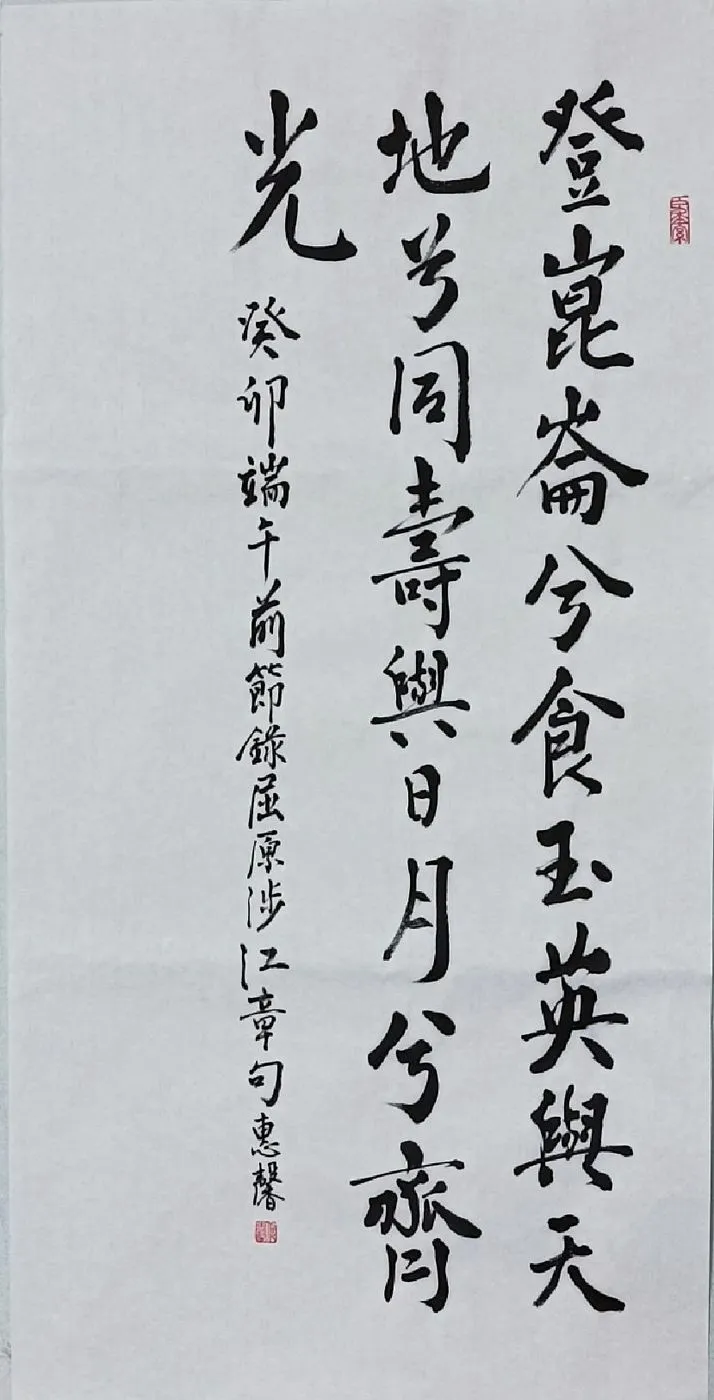 登崑崙兮食玉英與天
地兮同壽與日月兮齊
光
癸卯端午前節録屈原涉江章句惠馨